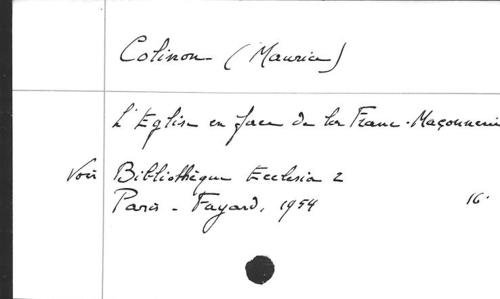 Colinon (Maurice)
L'Eglise en face de la Franc-Maçonnerie
Voir Bibliothèque Ecclesia 2
Paris - Fayard, 1954 16°